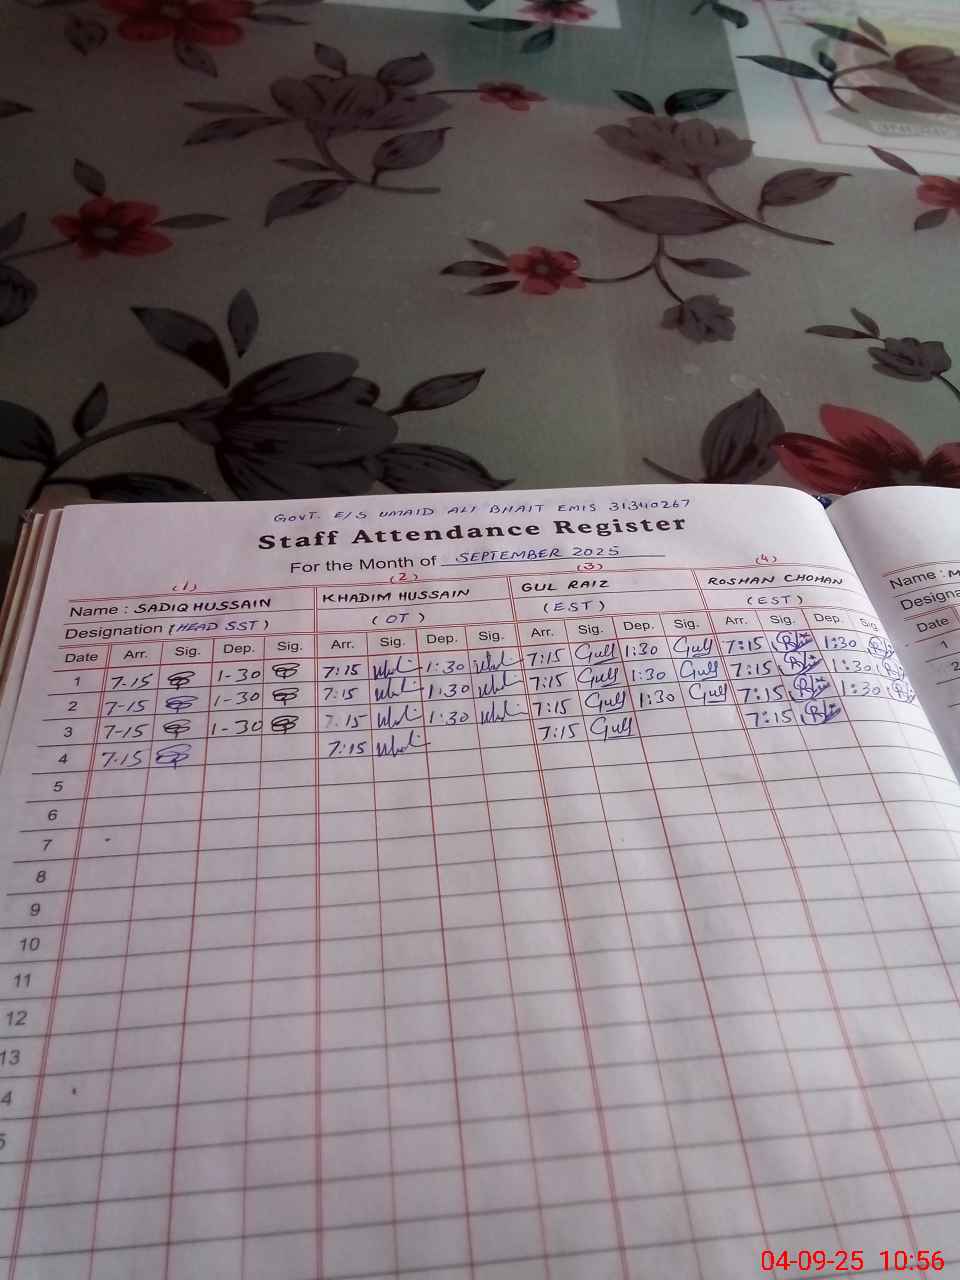 GOVT. E/S UMAID ALI BHAIT EMIS 31340267
Staff Attendance Register
For the Month of SEPTEMBER 2025
(1) (2) (3) (4)
Name : SADIQ HUSSAIN KHADIM HUSSAIN GUL RAIZ ROSHAN CHOHAN Name :
Designation (HEAD SST) (OT) (EST) (EST)
Date Arr. Sig. Dep. Sig. Arr. Sig. Dep. Sig. Arr. Sig. Dep. Sig. Arr. Sig. Dep. Sig. Date
1 7-15 1-30 7:15 1:30 7:15 Gull 1:30 Gull 7:15 1:30 1
2 7-15 1-30 7:15 1:30 7:15 Gull 1:30 Gull 7:15 1:30 2
3 7-15 1-30 7:15 1:30 7:15 Gull 1:30 Gull 7:15 1:30
4 7-15 7:15 7:15 Gull 7:15
5
6
7
8
9
10
11
12
13
4
5
04-09-25 10:56